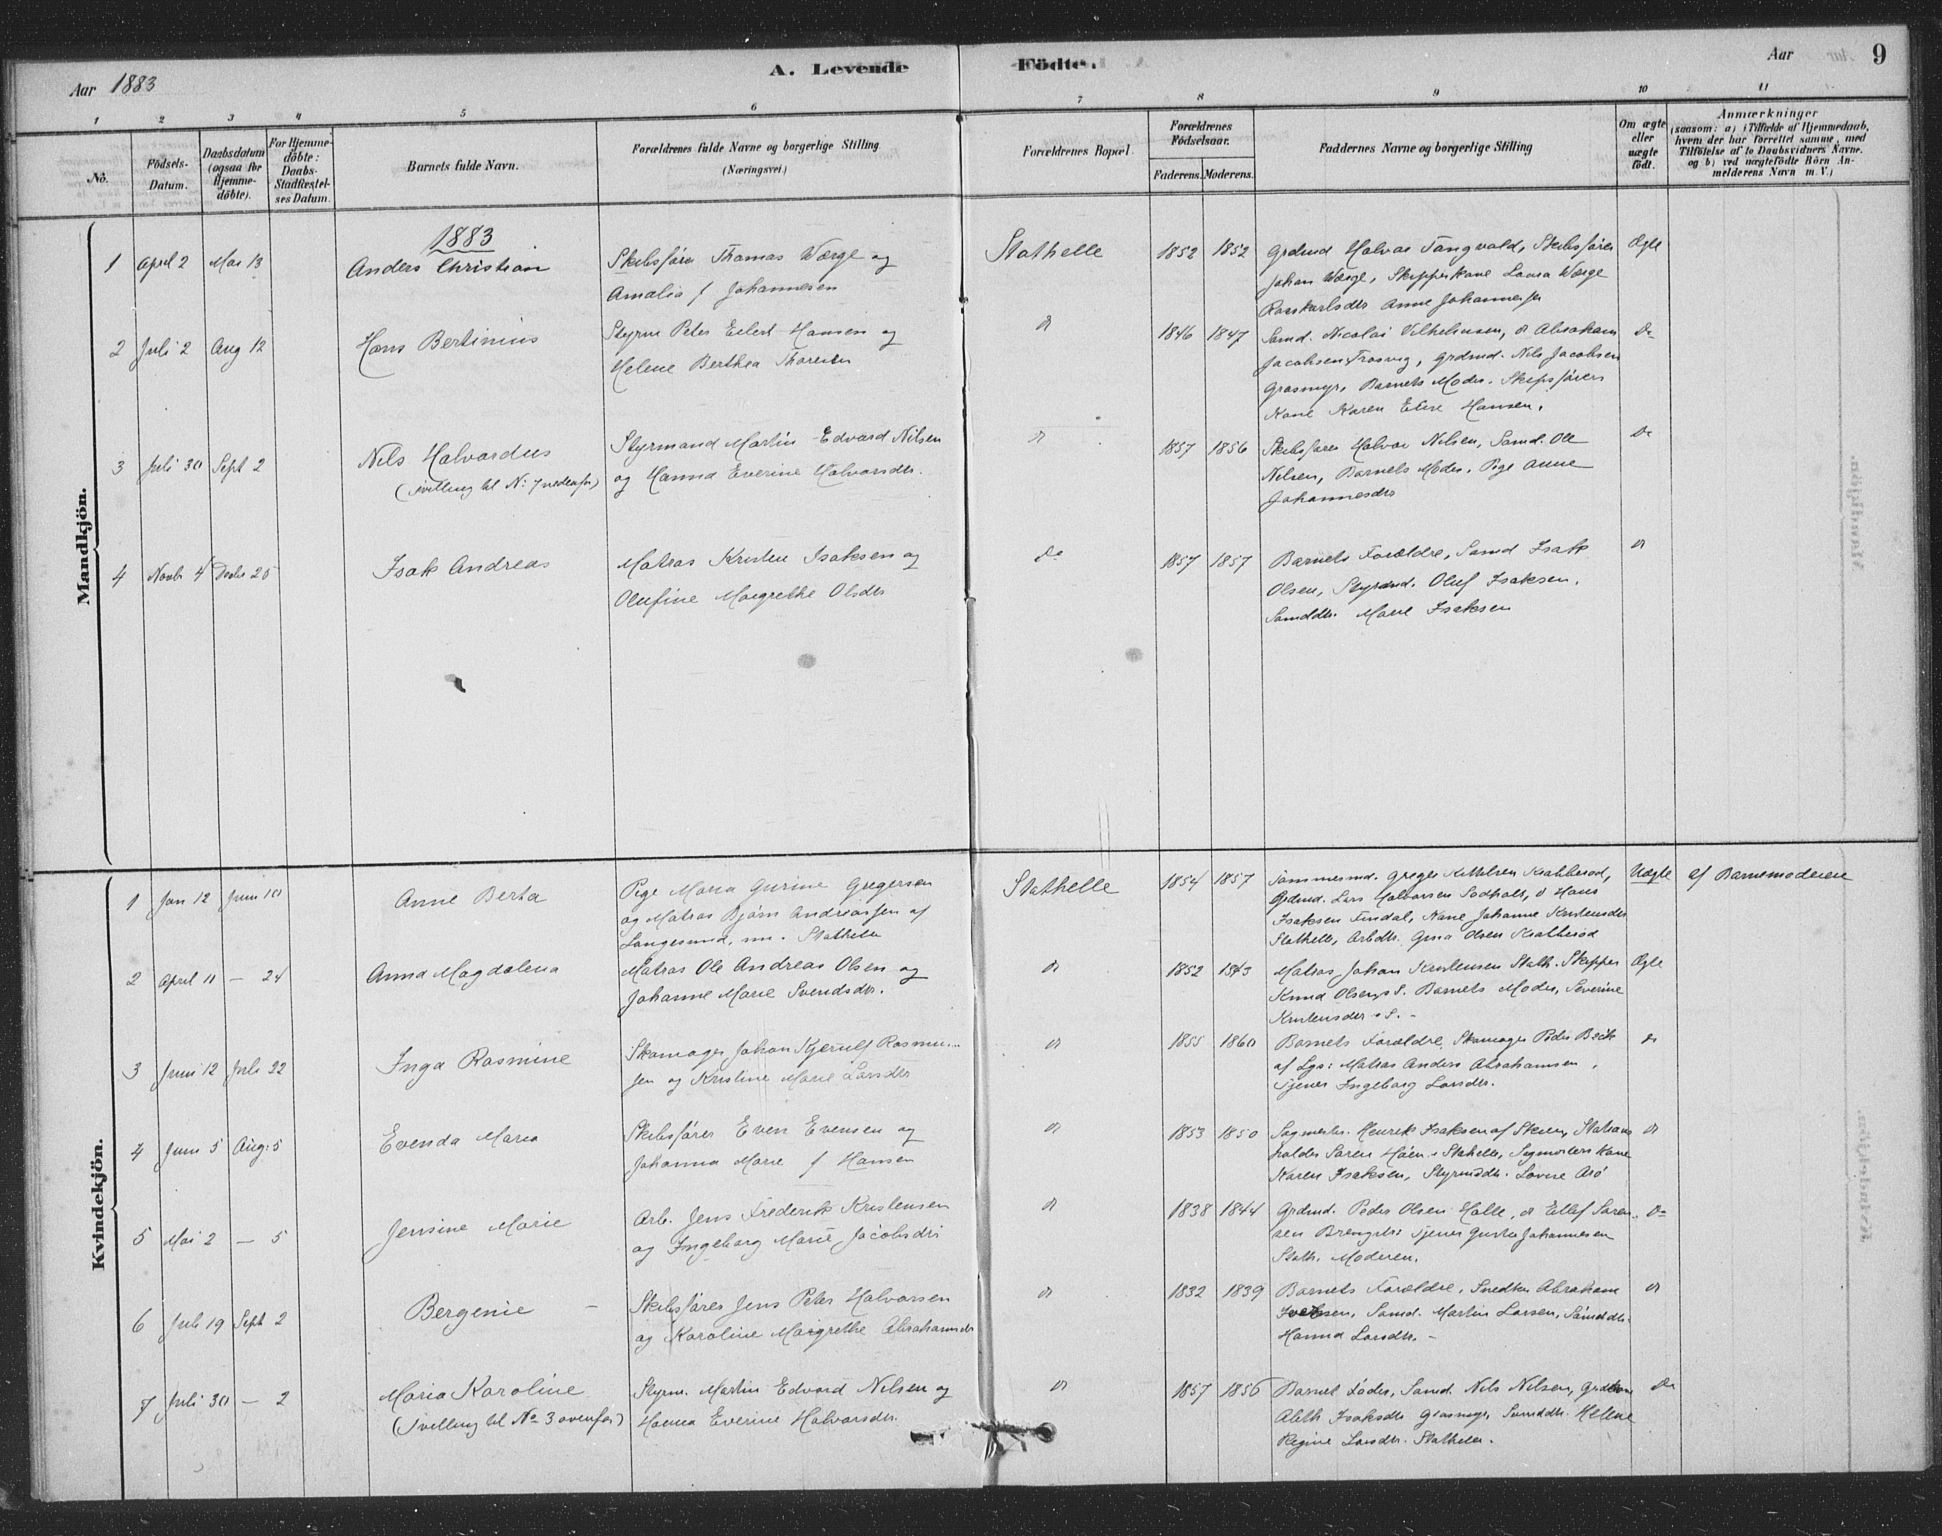 Aar 1883
A. Levende Födte.
Aar
9
1 2 3 4 5 6 7 8 9 10 11
No.
Födsels-Datum.
Daabsdatum (ogsaa for Hjemme-döbte).
For Hjemme-döbte: Daabs-Stadfæstel-ses Datum.
Barnets fulde Navn.
Forældrenes fulde Navne og borgerlige Stilling
(Næringsvei.)
Forældrenes Bopæl.
Forældrenes Födselsaar.
Faderens. Moderens.
Faddernes Navne og borgerlige Stilling
Om ægte eller uægte födt.
Anmærkninger
(saasom: a) i Tilfælde af Hjemmedaab,
hvem der har forrettet samme, med
Tilföielse af to Daabsvidners Navne.
og b) ved uægtefödte Börn An-
melderens Navn m. V.)
Mandkjön.
1883
1 April 2 Mai 13 Anders Christian
Skibsfører Thomas Wærge og
Amalia f Johannesen
Stathelle 1852 1852
Grdmd Halvor Tangvald, Skibsfører
Johan Wærge, Skipperkone Laura Wærge
Anne Johannesen
Ægte
2 Juli 2 Aug 12 Hans Bertinius
Styrm Peter Eilert Hansen og
Helene Berthea Thoresen
do 1846 1847
Sømd. Nicolai Vilhelmsen, do Abraham
Jacobsen Trosvig, Grdmd. Nils Jacobsen
Grasmyr, Barnets Moder. Skipsførers
Kone Karen Elise Hansen.
Do
3 Juli 30 Sept 2 Nils Halvardus
(Tvilling til No 7 nedenfor)
Styrmand Martin Edvard Nilsen
og Hanna Everine Halvorsdtr.
do 1857 1856
Skibsfører Halvor Nilsen, Sømd. Ole
Nilsen, Barnets Moder. Pige Anne
Johannesdtr
Do
4 Novbr 4 Decbr 25 Isak Andreas
Matros Kristen Isaksen og
Olufine Margrethe Olsdtr
Do 1857 1857
Barnets Forældre, Sømd Isak
Olsen, Styrmd. Oluf Isaksen.
Sømddtr. Marie Isaksen
do
Kvindekjön.
1 Jan 12 Juni 10 Anne Berta
Pige Maria Gurine Gregersen
og Matros Bjørn Andreassen af
Langesund, nu. Stathelle
Stathelle 1854 1857
Tømmermd. Greger Kittelsen
Grdmd. Lars Halvorsen Sodholt, do Hans
Isaksen Findal, Kone Johanne Kristensdtr
Stathelle, Arbdtr. Olsen
Uægte af Barnemoderen
2 April 11 — 24 Anna Magdalena
Matros Ole Andreas Olsen og
Johanne Marie Svendsdtr.
do 1852 1843
Matros Johan Kristensen Stath. Skipper
Knud Olsen Barnets Moder, Severine
Kristensdtr
Ægte
3 Juni 12 Juli 22 Inga Rasmine
Skomager Johan Kjerulf Rasmu-
sen og Kristine Marie Larsdtr
do 1855 1860
Barnets Forældre, Skomager Peder Beck
af Lgs: Matros Anders Abrahamsen,
Tjener Ingeborg Larsdtr.
do
4 Juni 5 Aug: 5 Evenda Maria
Skibsfører Even Evensen og
Johanna Marie f Hansen
do 1853 1850
Sagmester Henrik Isaksen af Skien, Stations
holder Søren Høen Stathelle, Sagmesters Kone
Karen Isaksen, Styrmddtr. Lovise Arø
do
5 Mai 2 — 5 Jensine Marie
Arb. Jens Frederik Kristensen
og Ingeborg Marie Jacobsdtr
do 1838 1844
Grdmd. Peder Olsen Halle, do Ellef Søren-
sen Tjener Gusta Johannesen
Stath. Moderen.
Do
6 Juli 19 Sept 2 Bergenie —
Skibsfører Jens Peter Halvorsen
og Karoline Margrethe Abrahamsdtr
do 1832 1839
Barnets Forældre, Snedker Abraham
Sømd. Martin Larsen, Sømddtr.
Hanna Larsdtr. —
do
7 Juli 30 — 2 Maria Karoline
(Tvilling til No 3 ovenfor)
Styrm. Martin Edvard Nilsen og
Hanna Everine Halvorsdtr.
do 1857 1856
Barnets Fader, Sømd. Nils Nilsen,
Isaksdtr Grasmyr, Sømddtr. Helene
Regine Larsdtr. Stathelle.
Do